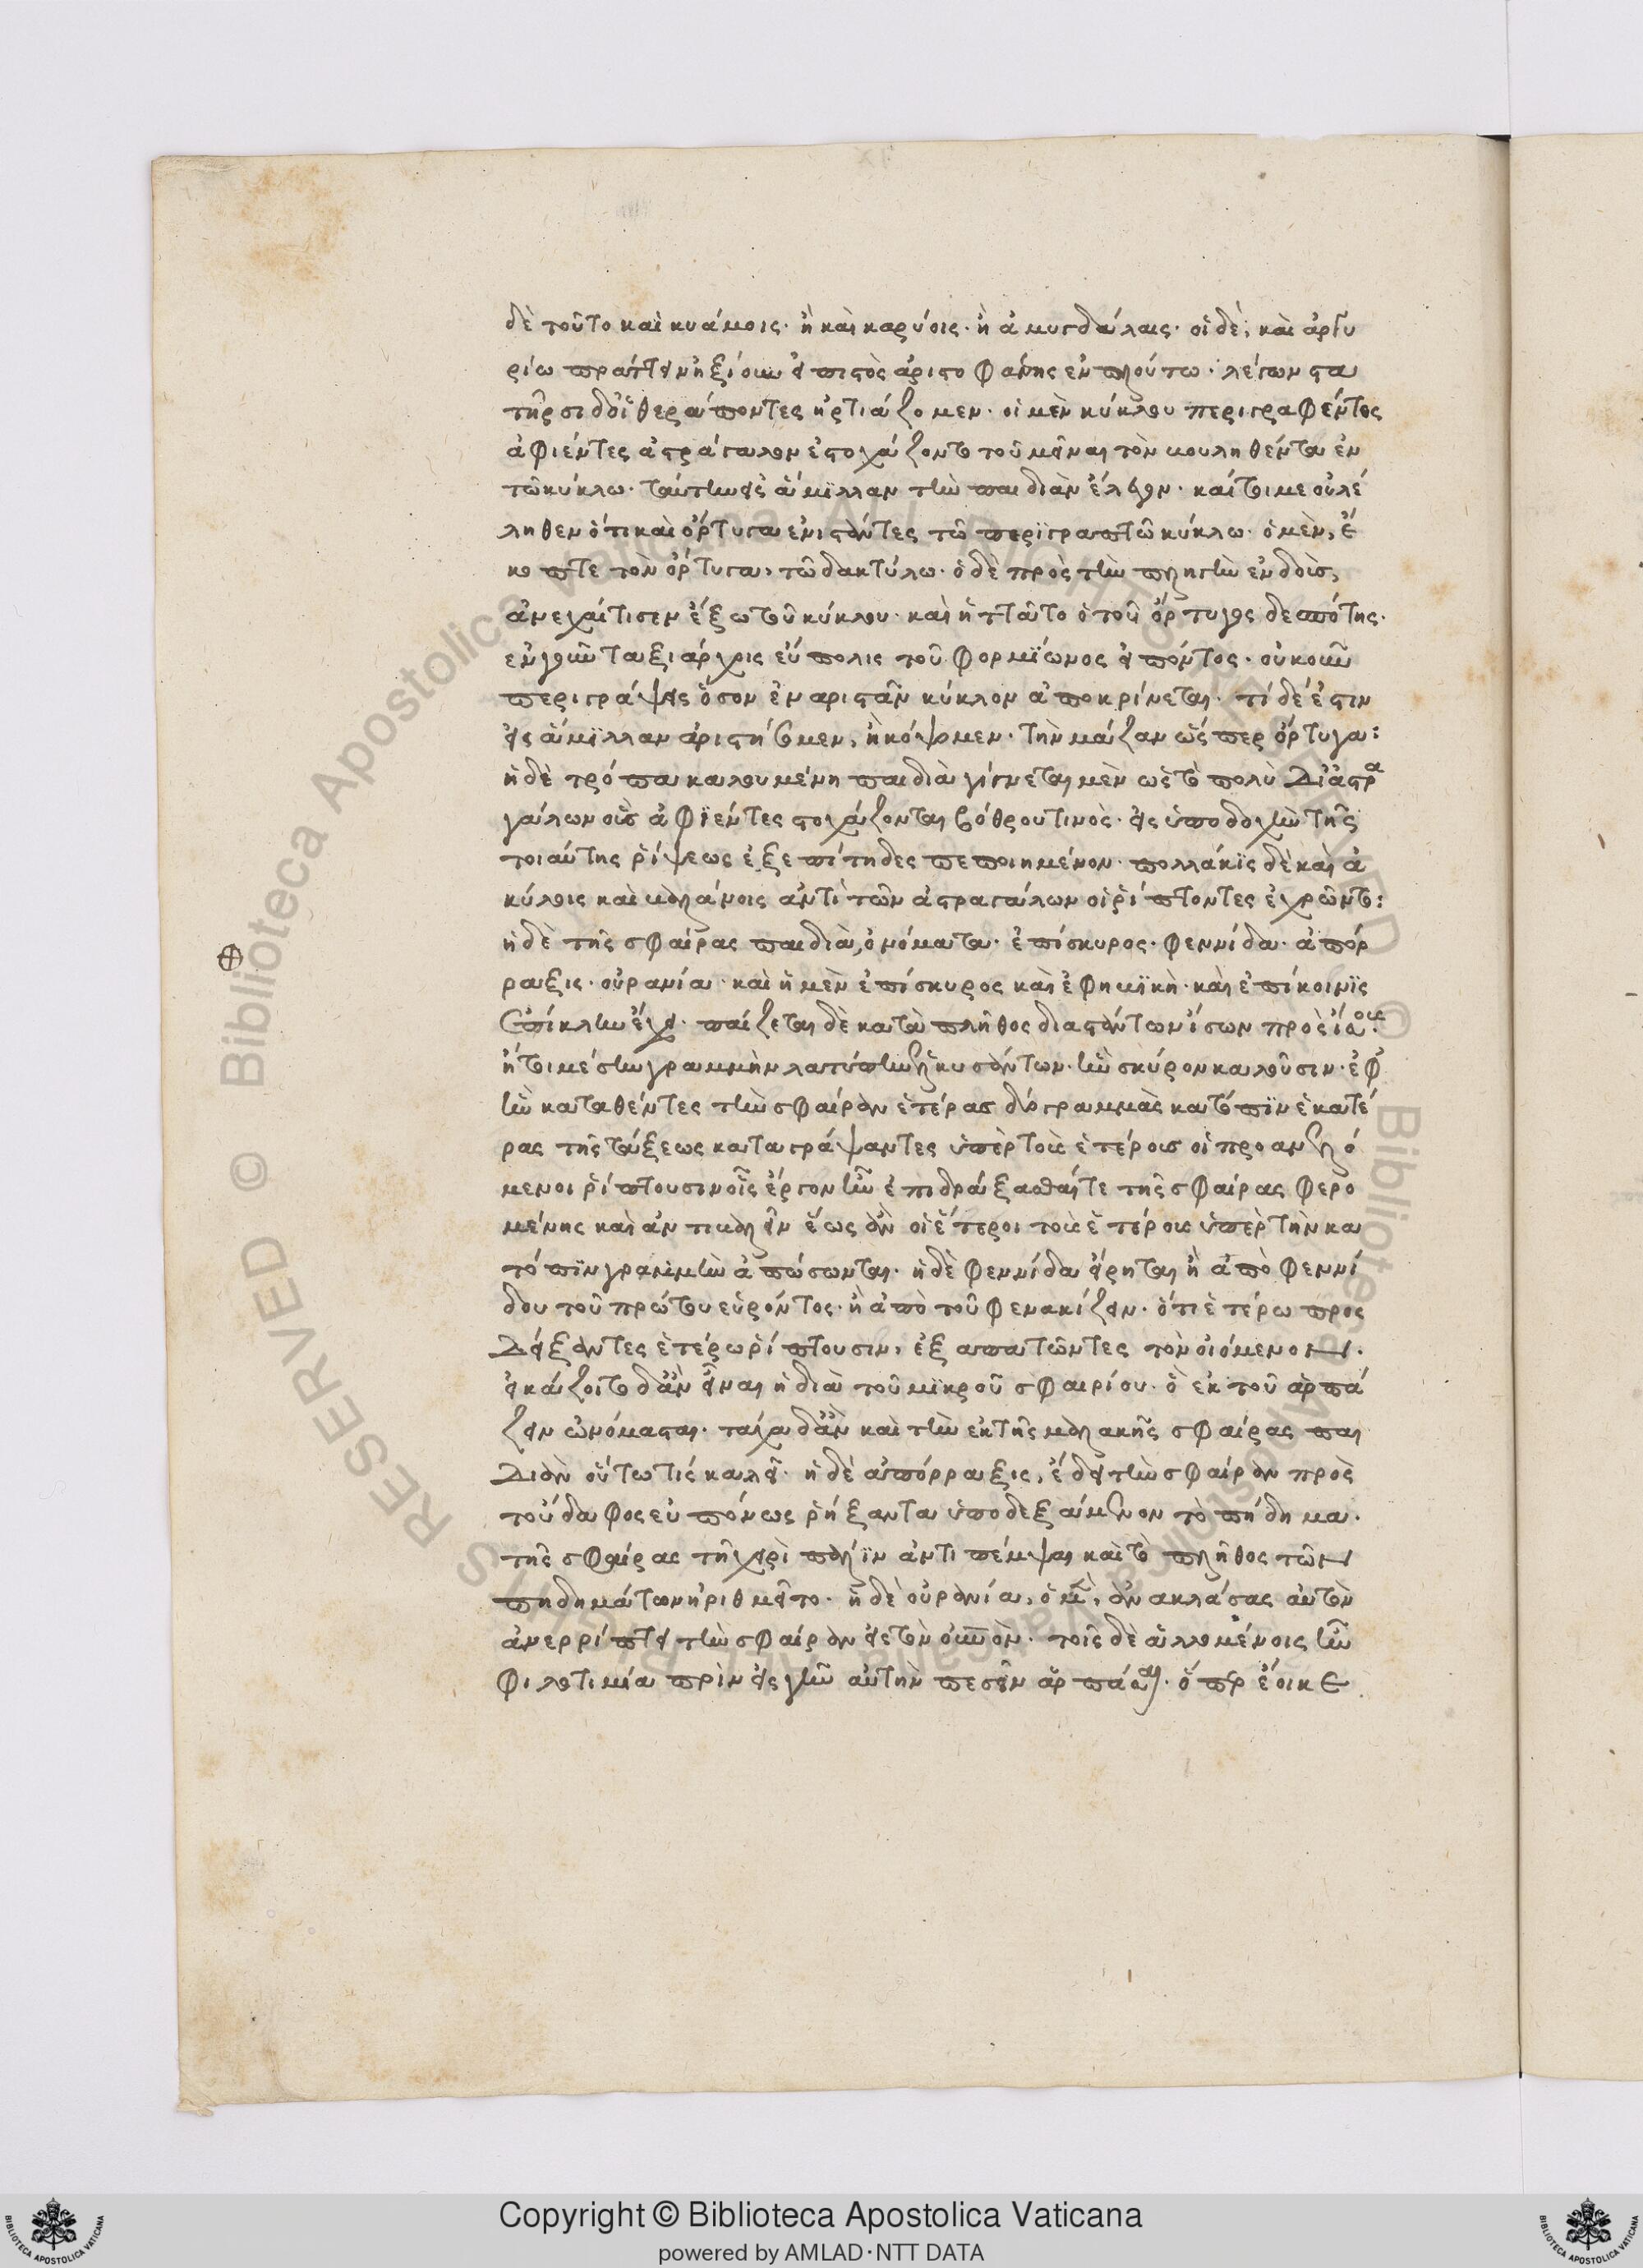 δὲ τοῦτο καὶ κυάμοις· ἢ καὶ καρύοις· ἢ ἀμυγδάλαις· οἱ δὲ, καὶ ἀργυ
ρίω πράττειν ἠξίουν εἰ πιστὸς ἀριστοφάνης ἐν πλούτω· λέγων στα
τῆρσι δ οἱ θεράποντες ἠρτιάζομεν· οἱ μὲν κύκλου περιγραφέντος
ἀφιέντες ἀστράγαλον ἐστοχάζοντο τοῦ μεῖναι τὸν
τῶ κύκλω· ταύτην εἰς ἅμιλλαν τὴν παιδιὰν ἔλεγον· καίτοι με οὐ λέ
ληθεν ὅτι καὶ ὄρτυγα ἐνιστάντες τῶ περιγραπτῶ κύκλω· ὁ μὲν, ἔ
κοπτε τὸν ὄρτυγα, τῶ δακτύλω· ὁ δὲ πρὸς τὴν πληγὴν ἐνδοὺς,
ἀνεχαίτισεν ἔξω τοῦ κύκλου· καὶ ἡττᾶτο ὁ τοῦ ὄρτυγος δεσπότης·
ἐν γοῦν ταξιάρχοις εὔπολις τοῦ φορμίωνος εἰπόντος· οὐκοῦν
περιγράψεις ὅσον ἐναριστᾶν κύκλον ἀποκρίνεται· τί δέ ἐστιν
εἰς ἅμιλλαν ἀριστήσομεν, ἢ κόψομεν· τὴν μάζαν ὥσπερ ὄρτυγα:
ἡ δὲ τρόπα καλουμένη παιδιὰ γίγνεται μὲν ὡς τὸ πολὺ δι ἀστρα
γάλων οὓς ἀφιέντες στοχάζονται βόθρου τινὸς· εἰς ὑποδοχὴν τῆς
τοιαύτης ῥίψεως ἐξεπίτηδες πεποιημένον· πολλάκις δὲ καὶ ἀ
κύλοις καὶ βαλάνοις ἀντὶ τῶν ἀστραγάλων οἱ ῥίπτοντες ἐχρῶντο:
ἡ δὲ τῆς σφαίρας παιδιὰ, ὀνόματα· ἐπίσκυρος· φεννίδα· ἀπόρ
ραξις· οὐρανία· καὶ ἡ μὲν ἐπίσκυρος καὶ ἐφηβικὴ· καὶ ἐπίκοινος
ἐπίκλην ἔχει· παίζεται δὲ κατὰ πλῆθος διαστάντων ἴσων πρὸς ἴσους·
εἶτα μέσην γραμμὴν λατύπη ἑλκυσάντων· ἣν σκύρον καλοῦσιν· ἐφ
ἣν καταθέντες τὴν σφαῖραν ἑτέρας δύο γραμμὰς κατόπιν ἑκατέ
ρας τῆς τάξεως καταγράψαντες ὑπὲρ τοὺς ἑτέρους οἱ προανελό
μενοι ῥίπτουσιν οἷς ἔργον ἦν ἐπιδράξασθαί τε τῆς σφαίρας φερο
μένης καὶ ἀντιβαλεῖν ἕως ἂν οἱ ἕτεροι τοὺς ἑτέρους ὑπὲρ τὴν κα
τόπιν γραμμὴν ἀπώσωνται· ἡ δὲ φεννίδα εἴρηται ἢ ἀπὸ φεννί
δου τοῦ πρώτου εὑρόντος· ἢ ἀπὸ τοῦ φενακίζειν· ὅτι ἑτέρω προς
δείξαντες ἑτέρω ῥίπτουσιν, ἐξαπατῶντες τὸν οἰόμενον·
εἰκάζοιτο δ ἂν εἶναι ἡ διὰ τοῦ μικροῦ σφαιρίου· ὃ ἐκ τοῦ ἁρπά
ζειν ὠνόμασται· τάχα δ ἂν καὶ τὴν ἐκ τῆς μαλακῆς σφαίρας παι
διὰν οὕτω τὶς καλεῖ· ἡ δὲ ἀπόρραξις, ἔδει τὴν σφαῖραν πρὸς
τοὔδαφος εὐπόνως ῥήξαντα ὑποδεξάμενον τὸ πήδημα·
τῆς σφαίρας τῆ χειρὶ πάλιν ἀντιπέμψαι καὶ τὸ πλῆθος τῶν
πηδημάτων ἠριθμεῖτο· ἡ δὲ οὐρανία, ὁ μὲν, ἀνακλάσας αὑτὸν
ἀνερρίπτει τὴν σφαῖραν εἰς τὸν οὐρανόν· τοῖς δὲ ἁλλομένοις ἦν
φιλοτιμία πρὶν εἰς γῆν αὐτὴν πεσεῖν ἁρπάσαι· ὅπερ ἔοικε
© Biblioteca Apostolica Vaticana ALL RIGHTS RESERVED
Copyright © Biblioteca Apostolica Vaticana
powered by AMLAD·NTT DATA